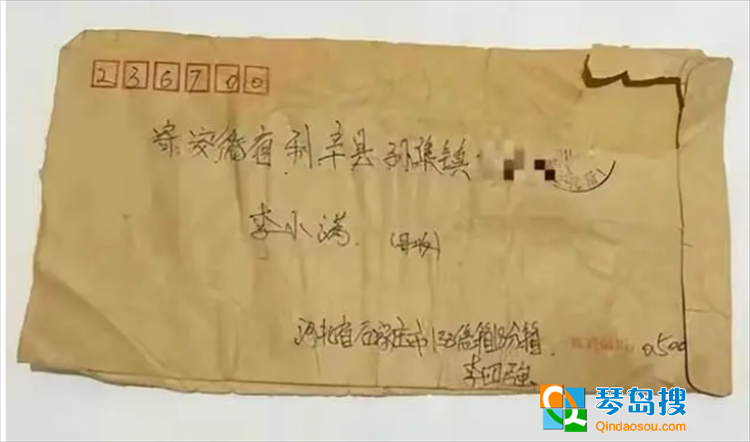 236700
安徽省利辛县孙集镇
李小满
河北省石家庄市133信箱 分箱
0500
李四
琴岛搜
Qindaosou.com